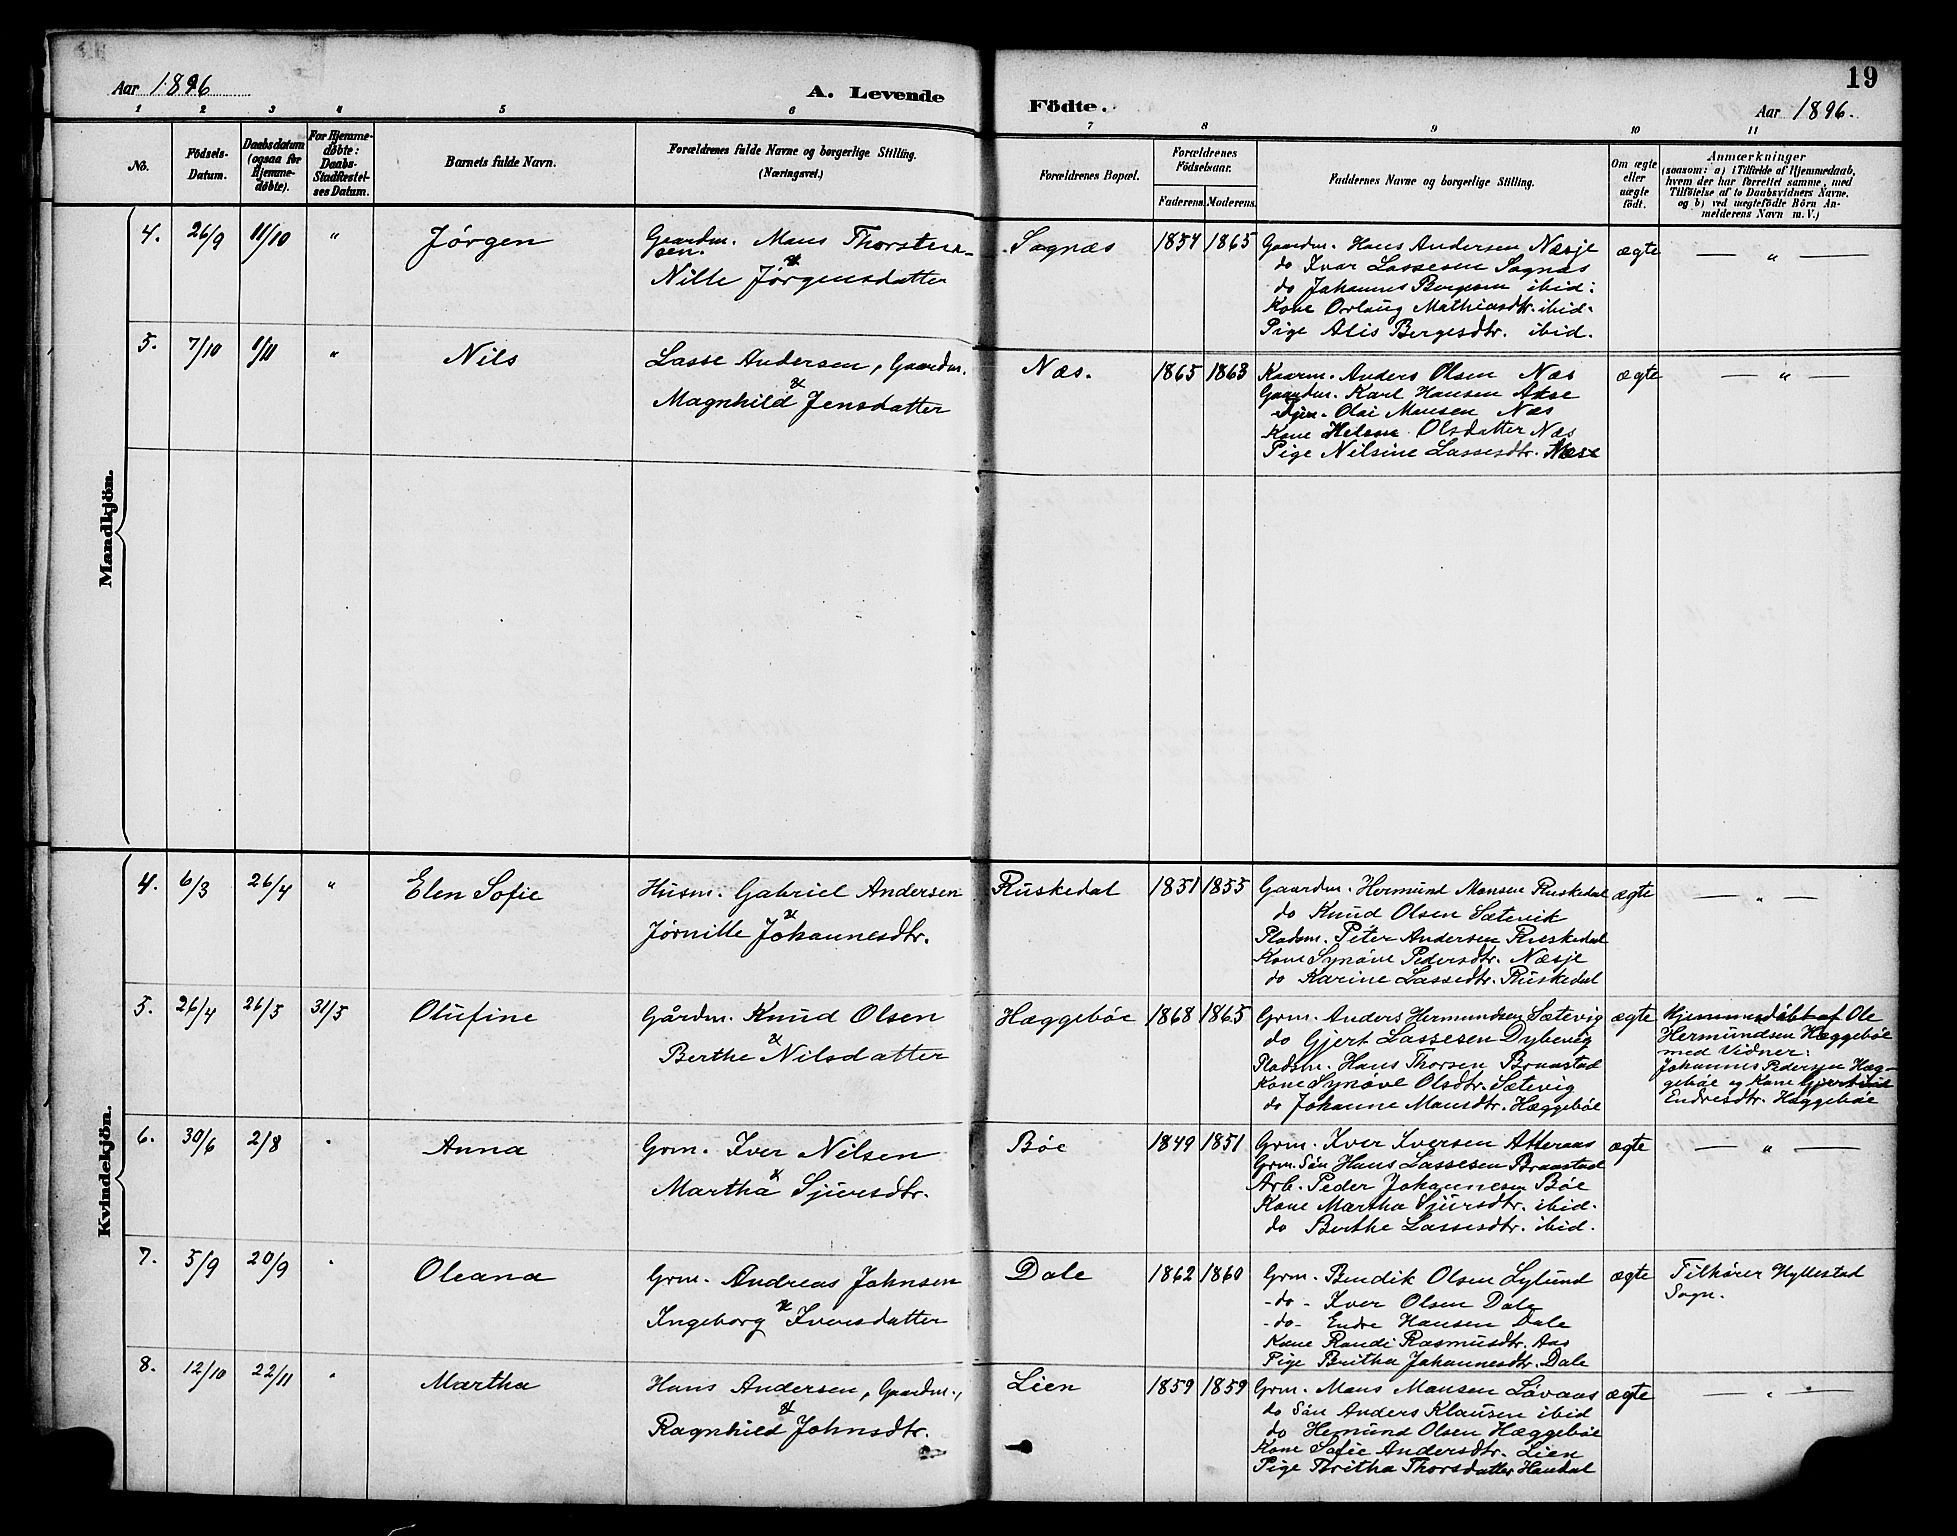 19
Aar 1896
A. Levende
Födte.
Aar 1896.
1 2 3 4 5 6 7 8 9 10 11
No.
Födsels-
Datum.
Daabsdatum
(ogsaa for
Hjemme-
døbte).
For Hjemme-
døbte:
Daabs-
Stadfæstel-
ses Datum.
Barnets fulde Navn.
Forældrenes fulde Navne og borgerlige Stilling.
(Næringsvei.)
Forældrenes Bopæl.
Forældrenes
Födselsaar.
Faderens. Moderens.
Faddernes Navne og borgerlige Stilling.
Om ægte
eller
uægte
født.
Anmærkninger
(saasom: a) i Tilfælde af Hjemmedaab,
hvem der har forrettet samme, med
Tilföielse af to Daabsvidners Navne.
og b) ved uægtefödte Börn An-
melderens Navn m. V.)
Mandkjön.
4. 26/9 11/10 " Jørgen
Gaardm. Mans Thorsten-
sen.
&
Nille Jørgensdatter
Sognæs 1854 1865
Gaardm. Hans Andersen Næsje
do Ivar Lassesen Sognæs
do Johannes ibid:
Kone Orlaug Mathiasdtr. ibid.
Pige Alis Bergesdtr. ibid.
ægte — " —
5. 7/10 1/11 " Nils
Lasse Andersen, Gaardm.
&
Magnhild Jensdatter
Næs. 1865 1863
Kaarm. Anders Olsen Næs
Gaardm. Karl Hansen Akse
Olai Mansen Næs
Kone Helene Olsdatter Næs
Pige Nilsine Lassesdtr. Næse
ægte — " —
Kvindekjön.
4. 6/3 26/4 " Elen Sofie
Husm. Gabriel Andersen
&
Jørnille Johannesdtr.
Ruskedal 1851 1855
Gaardm. Hermund Mansen Ruskedal
do Knud Olsen Sætevik
Pladsm. Peter Andersen Ruskedal
Kone Synöve Pedersdtr. Næsje
do Karine Lassedtr. Ruskedal
ægte — " —
5. 26/4 26/5 31/5 Olufine
Gårdm. Knud Olsen
&
Berthe Nilsdatter
Hæggebøe 1868 1865
Grm. Anders Hermundsen Sætevig
do Gjert Lassesen Dybevig
Pladsm. Hans Thorsen Braastad
Kone Synöve Olsdtr. Sætevig
do Johanne Mansdtr. Hæggebøe
ægte
Hjemmedöbt af Ole
Hermundsen Hæggebøe
med Vidner:
Johannes Pedersen Hæg-
gebøe og Kone Gjertine
Endresdtr. Hæggebøe
6. 30/6 2/8 " Anna
Grm. Iver Nilsen
&
Martha Sjursdtr.
Bøe 1849 1851
Grm. Iver Iversen Atteraas
Grm. Sön Hans Lassesen Braastad
Arb. Peder Johannesen Bøe
Kone Martha Sjursdtr. ibid.
do Berthe Lassesdtr. ibid.
ægte — " —
7. 5/9 20/9 " Oleana
Grm. Andreas Johnsen
&
Ingeborg Iversdatter
Dale 1862 1860
Grm. Bendik Olsen Lylund
-do- Iver Olsen Dale
-do- Endre Hansen Dale
Kone Randi Rasmusdtr. Aas
Pige Britha Johannesdtr. Dale
ægte
Tilhører Hyllestad
Sogn.
8. 12/10 22/11 " Martha
Hans Andersen, Gaardm.,
&
Ragnhild Johnsdtr.
Lien 1859 1859
Grm. Mans Mansen Lövaas
do Sön Anders Klausen ibid
do Hermund Olsen Hæggebøe
Kone Sofie Andersdtr. Lien
Pige Britha Thorsdatter Haudal
ægte — " —